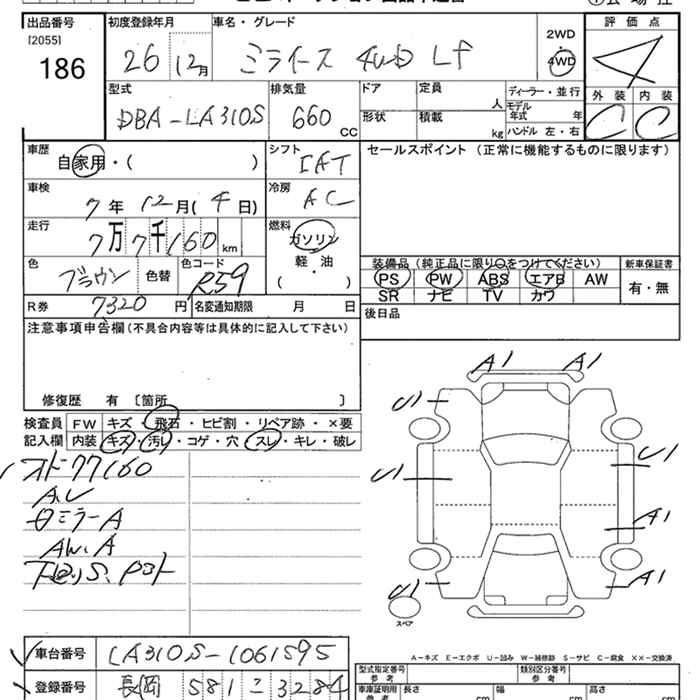 出品番号 初度登録年月 車名・グレード 評価点
[2055]
186
26 12月 ミライース 4WD Lf 2WD 4WD 4
型式 排気量 ドア 定員 人 ディーラー・並行 外装 内装
DBA-LA310S 660 CC 形状 積載 kg モデル年式 年 C C
ハンドル 左・右
車歴 自家用・( ) シフト IAT セールスポイント (正常に機能するものに限ります)
車検 7年 12月(4日) 冷房 AC
走行 7万7千160 km 燃料 ガソリン
軽・油
( )
色 ブラウン 色替 色コード R59
装備品(純正品に限り○をつけてください) 新車保証書
PS PW ABS エアB AW 有・無
SR ナビ TV カワ
R券 7320円 名変通知期限 月 日 後日品
注意事項申告欄(不具合内容等は具体的に記入して下さい)
修復歴 有 〔箇所 〕
検査員 FW キズ・飛石・ヒビ割・リペア跡・×要
記入欄 内装 キズ・汚レ・コゲ・穴・スレ・キレ・破レ
77160
A1 A1
U1
U1 U1
A1
U1 A1
スペア
A-キズ E-エクボ U-凹み W-補修跡 S-サビ C-腐食 XX-交換済
車台番号 LA310S-1061595
登録番号 長岡 581 こ 3284
型式指定番号 参考 類別区分番号 参考
車庫証明用 参考 長さ cm 幅 cm 高さ cm